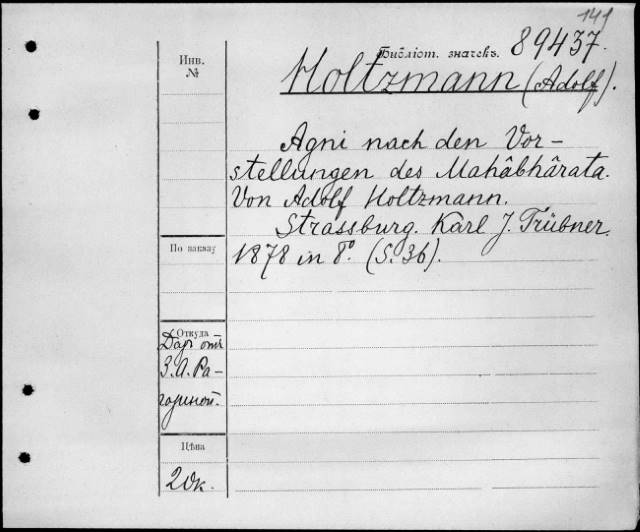 141
89437.
Инв.
№
Библіот. значекъ.
Holtzmann (Adolf).
Agni nach den Vor–
stellungen des Mahâbhârata.
Von Adolf Holtzmann.
Strassburg. Karl J. Trübner.
По заказу
1878 in 8º. (S. 36).
Откуда
Даръ отъ
З. А. Ра–
гозиной.
Цѣна
20к.